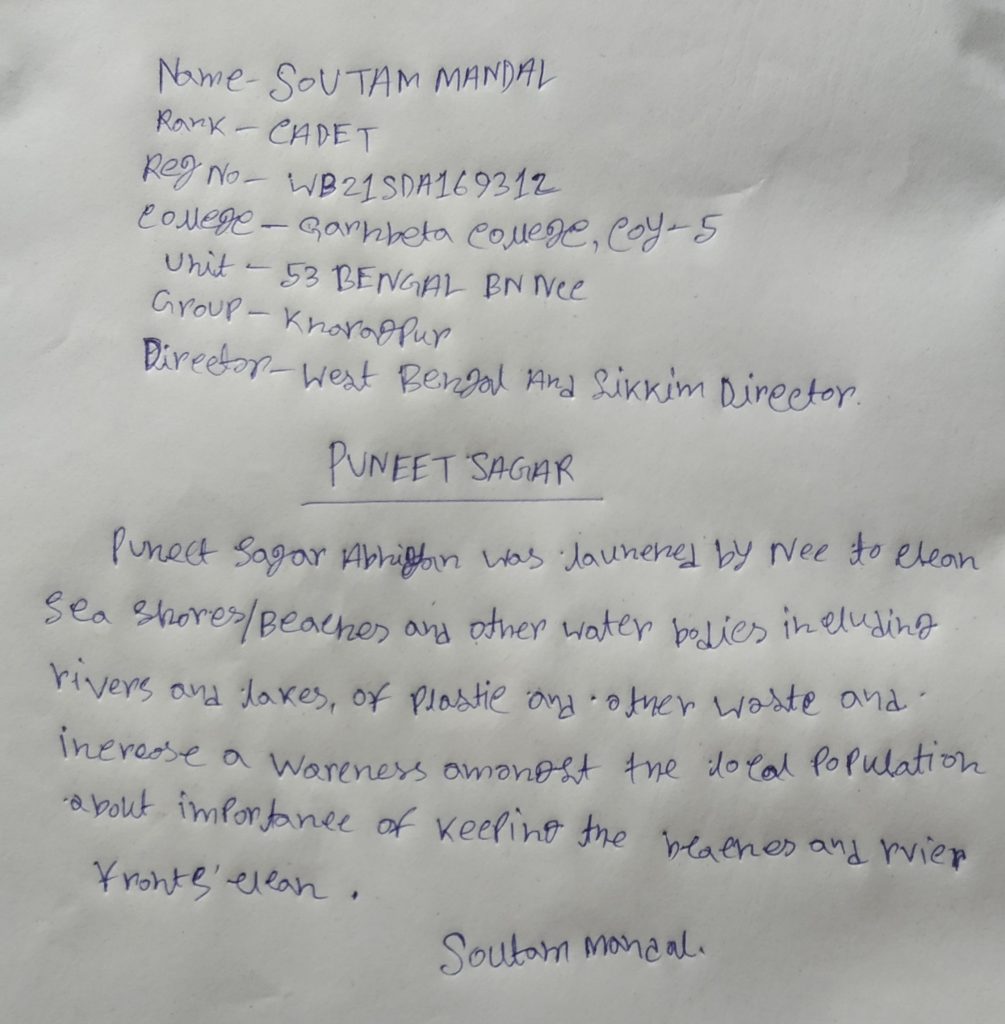 Name- SOUTAM MANDAL
Rank - CADET
Reg No - WB21SDA169312
College - Garhbeta College, Coy-5
Unit - 53 BENGAL BN Ncc
Group - Kharagpur
Director - West Bengal And Sikkim Director.
PUNEET SAGAR
Puneet Sagar Abhigan was launched by Ncc to clean
Sea Shores/Beaches and other water bodies including
rivers and lakes, of plastic and other waste and
increase a wareness amongst the local Population
about importance of keeping the beaches and rvier
fronts' clean.
Soutam mandal.